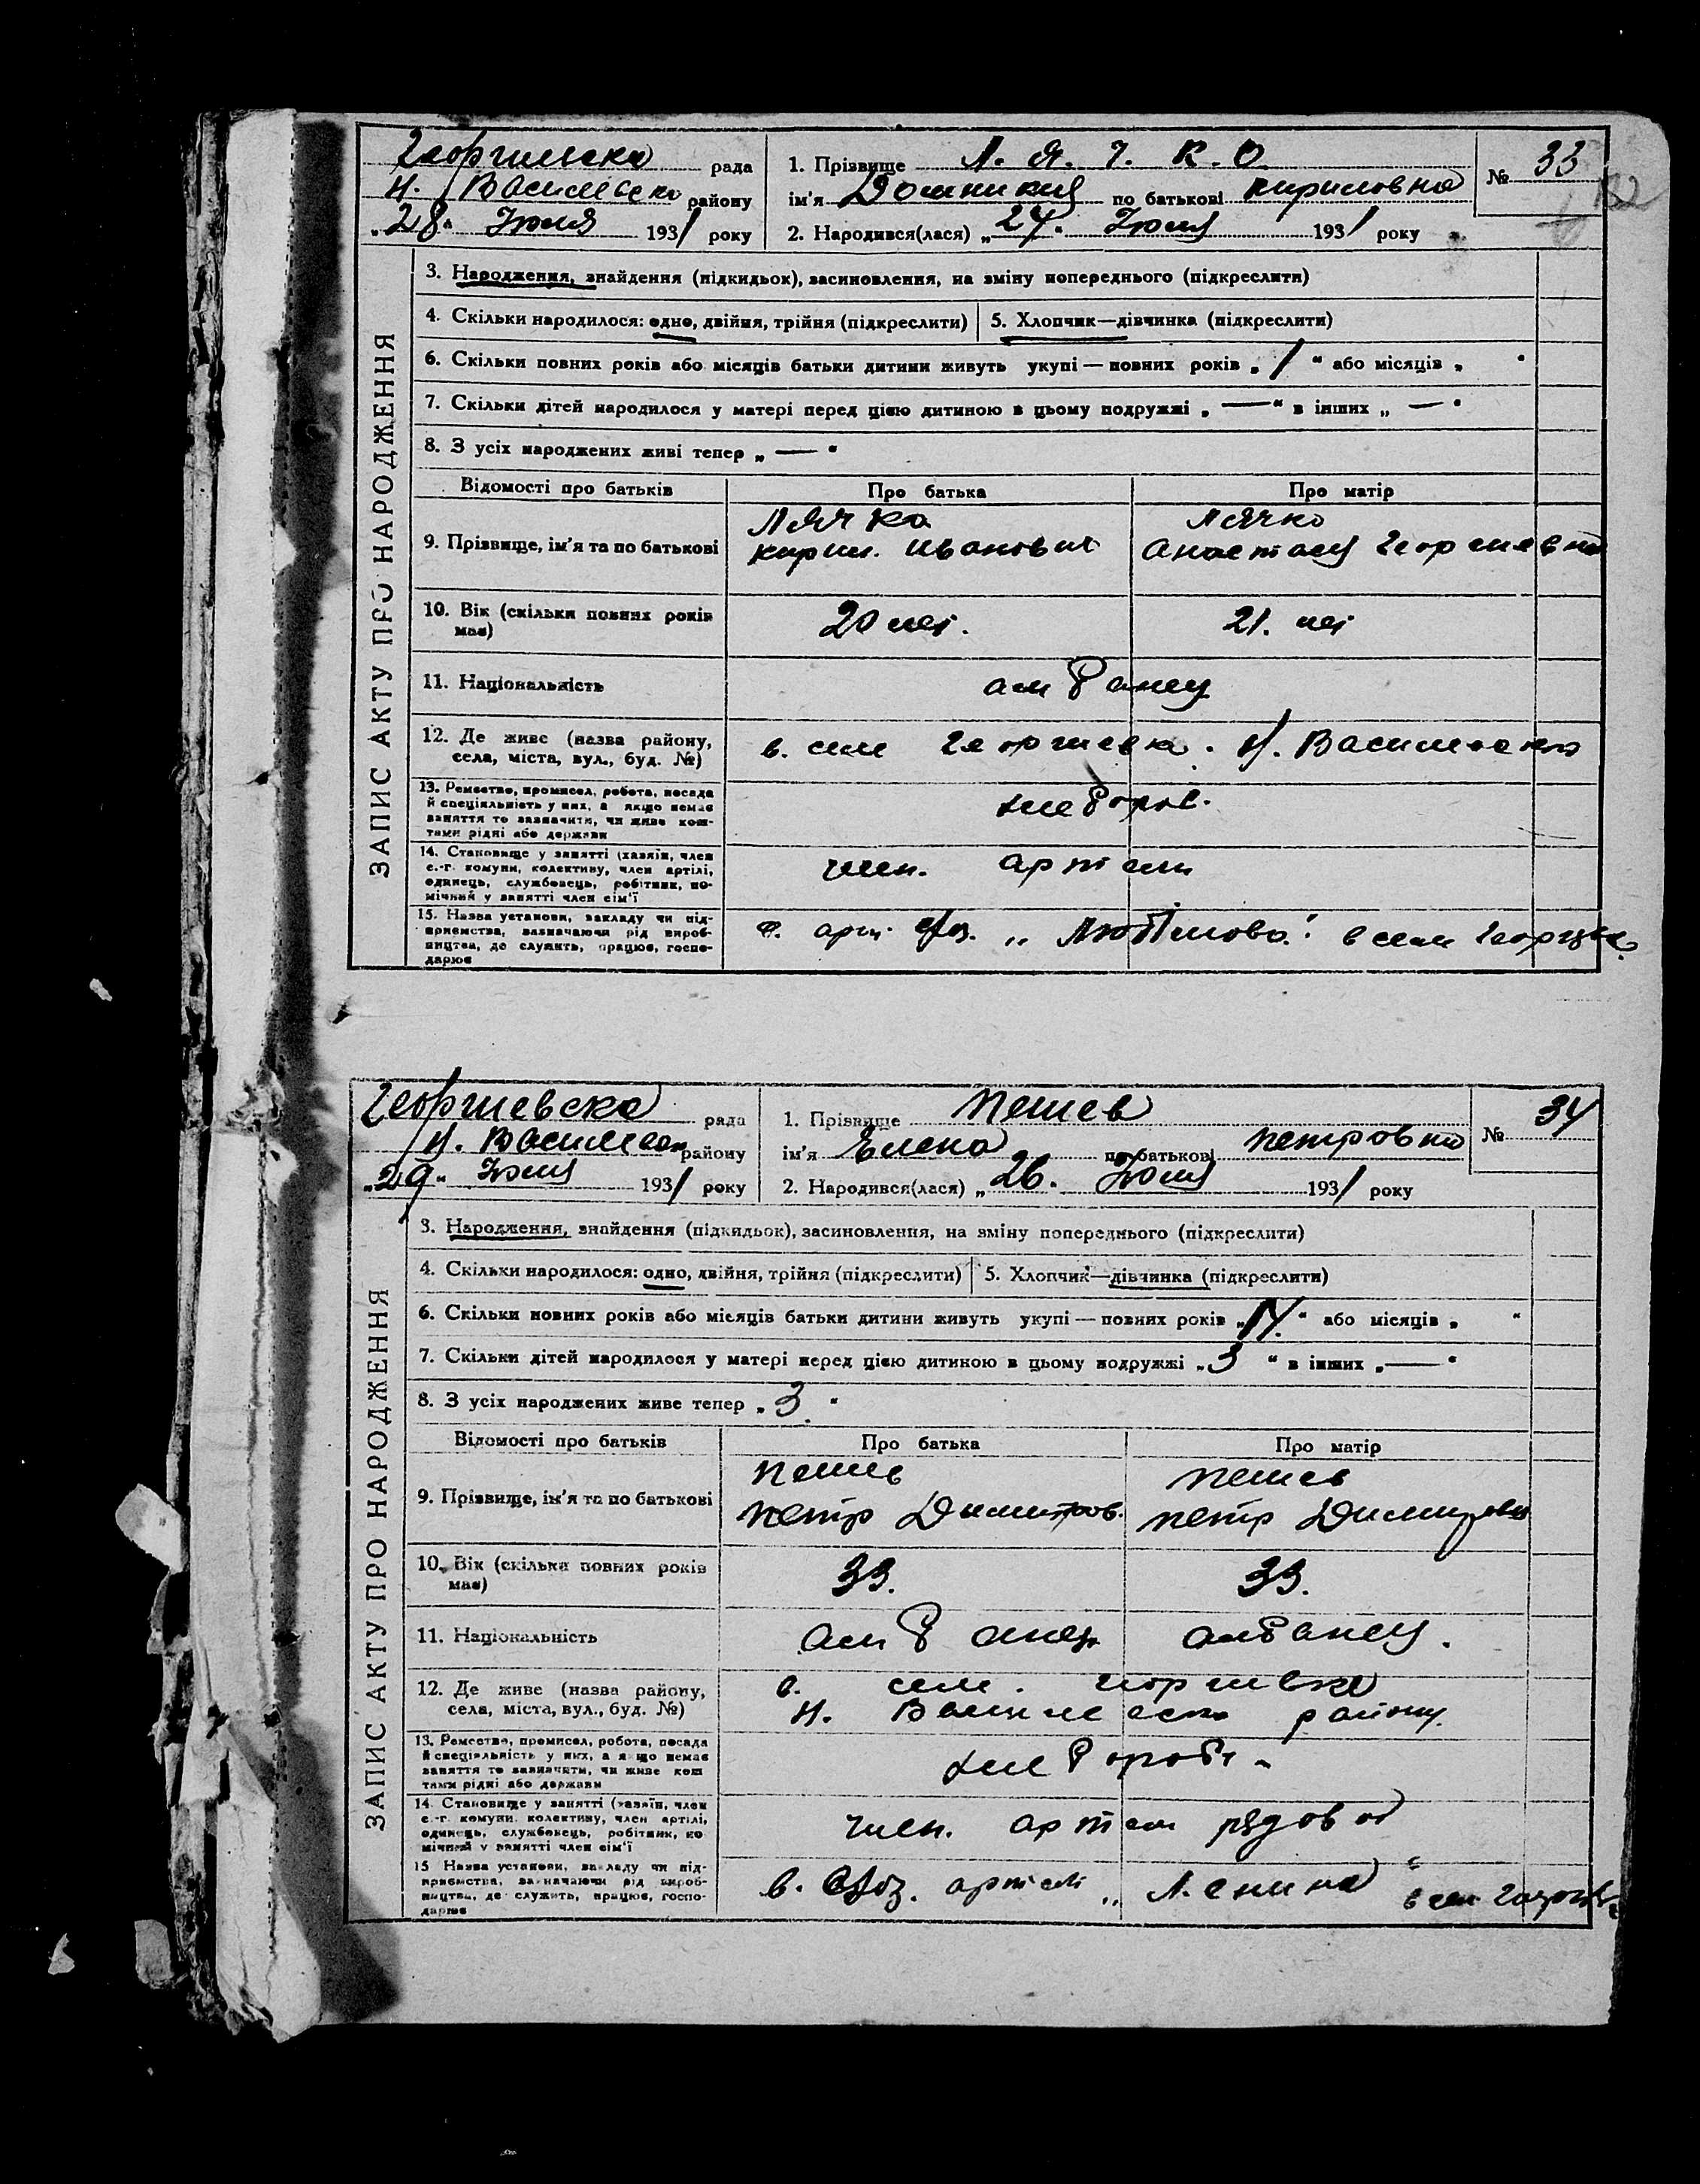 Георгиевска рада
Н. Васильевско району
„28“ Июля 1931 року
1. Прізвище Л. Я. Ч. К. О
ім'я Домникия по батькові Кириловна
2. Народився(лася) „24“ Июля 1931 року
№ 33
ЗАПИС АКТУ ПРО НАРОДЖЕННЯ
3. Народження, знайдення (підкидьок), засиновлення, на зміну попереднього (підкреслити)
4. Скільки народилося: одно, двійня, трійня (підкреслити) 5. Хлопчик—дівчинка (підкреслити)
6. Скільки повних років або місяців батьки дитини живуть укупі — повних років „1“ або місяців „ “
7. Скільки дітей народилося у матері перед цією дитиною в цьому подружжі „—“ в інших „—“
8. З усіх народжених живі тепер „—“
Відомості про батьків Про батька Про матір
9. Прізвище, ім'я та по батькові
Лячко
Кирил. Иванович
Лячко
Анастасия Георгиевна
10. Вік (скільки повних років має) 20 лет. 21. лет
11. Національність албанец
12. Де живе (назва району, села, міста, вул., буд. №) в. селе Георгиевка. Н. Васильевско
13. Ремество, промисел, робота, посада
й спеціяльність у них, а якщо немає
заняття то зазначити, чи живе кош-
тами рідні або держави
хлебороб.
14. Становище у занятті (хазяїн, член
с.-г. комуни, колективу, член артілі,
одинець, службовець, робітник, по-
мічний у занятті член сім'ї
член. артели
15. Назва установи, закладу чи під-
приємства, зазначаючи рід вироб-
ництва, де служить, працює, госпо-
дарює
Георгиевска рада
Н. Васильевск району
„29“ Июля 1931 року
1. Прізвище Пешев
ім'я Елена по батькові Петровна
2. Народився(лася) „26. Июля 1931 року
№ 34
ЗАПИС АКТУ ПРО НАРОДЖЕННЯ
3. Народження, знайдення (підкидьок), засиновлення, на зміну попереднього (підкреслити)
4. Скільки народилося: одно, двійня, трійня (підкреслити) 5. Хлопчик—дівчинка (підкреслити)
6. Скільки повних років або місяців батьки дитини живуть укупі — повних років „14.“ або місяців „ “
7. Скільки дітей народилося у матері перед цією дитиною в цьому подружжі „3“ в інших „—“
8. З усіх народжених живе тепер „3.“
Відомості про батьків Про батька Про матір
9. Прізвище, ім'я та по батькові
Пешев
Петр Димитров.
Пешев
Петр Димитров
10. Вік (скільки повних років має) 33. 33.
11. Національність албанец албанец.
12. Де живе (назва району, села, міста, вул., буд. №)
в. селе. Георгиевке
Н. Васильевско району.
13. Ремество, промисел, робота, посада
й спеціяльність у них, а якщо немає
заняття то зазначити, чи живе кош
тами рідні або держави
хлебороб
14. Становище у занятті (хазяїн, член
с.-г. комуни, колективу, член артілі,
одинець, службовець, робітник, по
мічний у занятті член сім'ї
член. артели рядовой
15 Назва установи, закладу чи під-
приємства, зазначаючи рід вироб-
ництва, де служить, працює, госпо-
дарює
артели „Ленина“